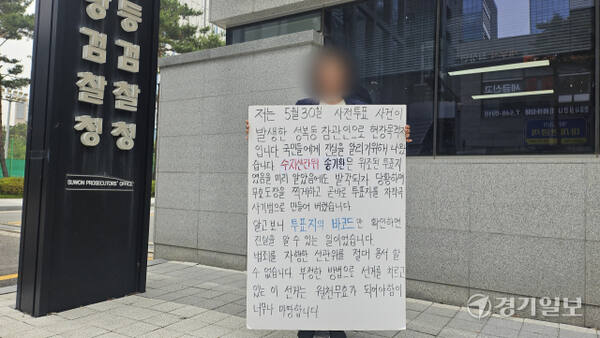 등검찰청
방검찰청
SUWON PROSECUTORS' OFFICE
저는 5월 30일 사전투표 사건이
발생한 성복동 참관인으로 현장목격자
입니다. 국민들에게 진실을 알리기위해 나왔
습니다. 수지선관위 송기환은 위조된 투표지
였음을 미리 알았음에도 발각되자 당황하며
무효도장을 찍게하고 곧바로 투표자를 자작극
사기범으로 만들어 버렸습니다.
알고보니 투표지의 바코드만 확인하면
진실을 알 수 있는 일이었습니다.
범죄를 자행한 선관위를 절대 용서 할
수 없습니다. 부정한 방법으로 선거를 치르고
있는 이 선거는 원천무효가 되어야함이
너무나 마땅합니다
경기일보